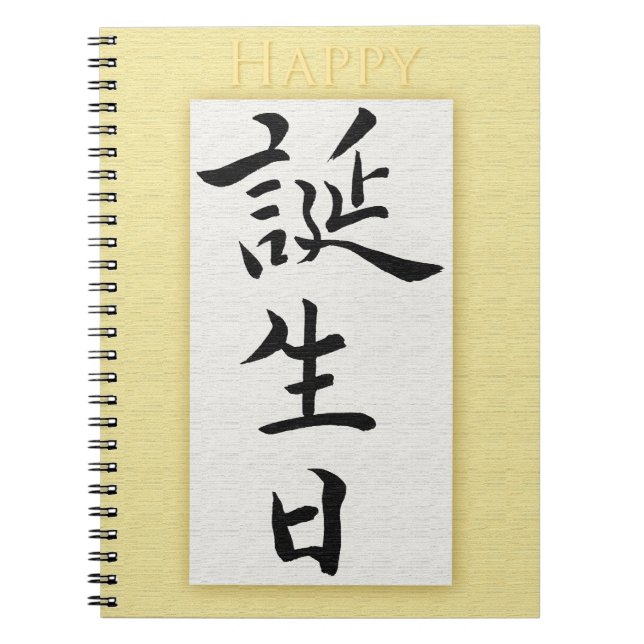 HAPPY
誕生日